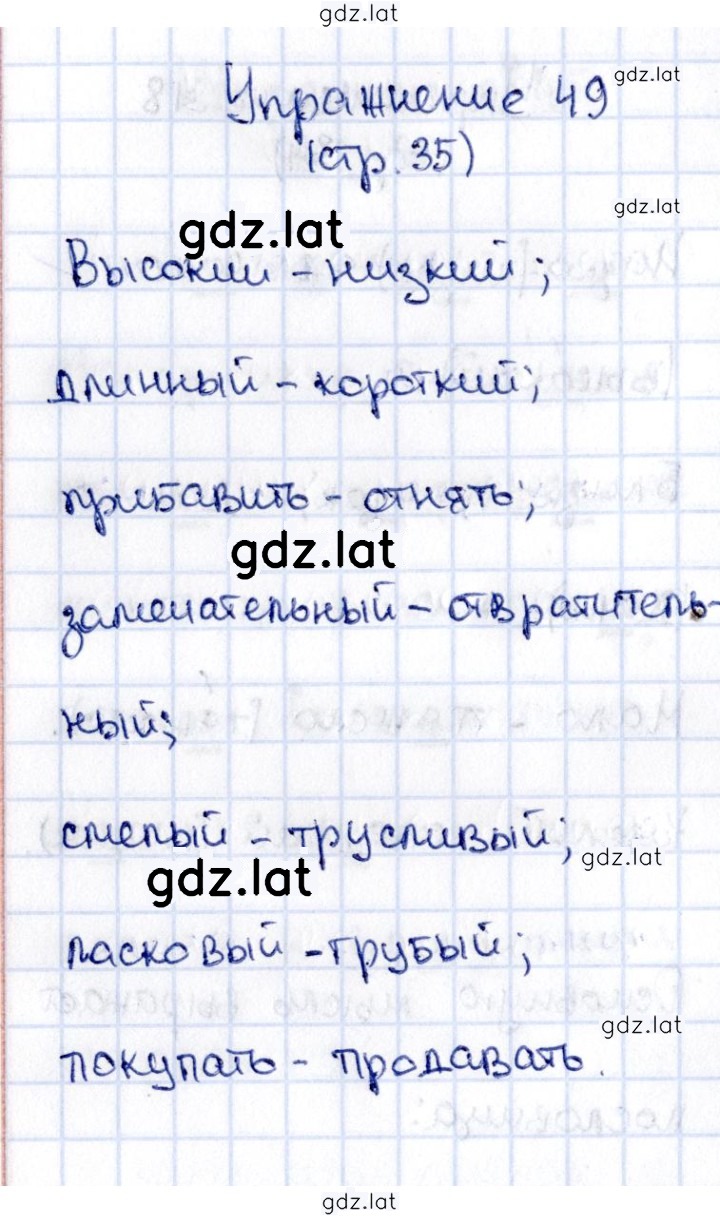 gdz.lat
Упражнение 49
gdz.lat
(стр. 35)
gdz.lat
gdz.lat
Высокий – низкий;
длинный – короткий;
прибавить – отнять;
gdz.lat
замечательный – отвратитель-
ный;
смелый – трусливый;
gdz.lat
gdz.lat
ласковый – грубый;
gdz.lat
покупать – продавать.
gdz.lat